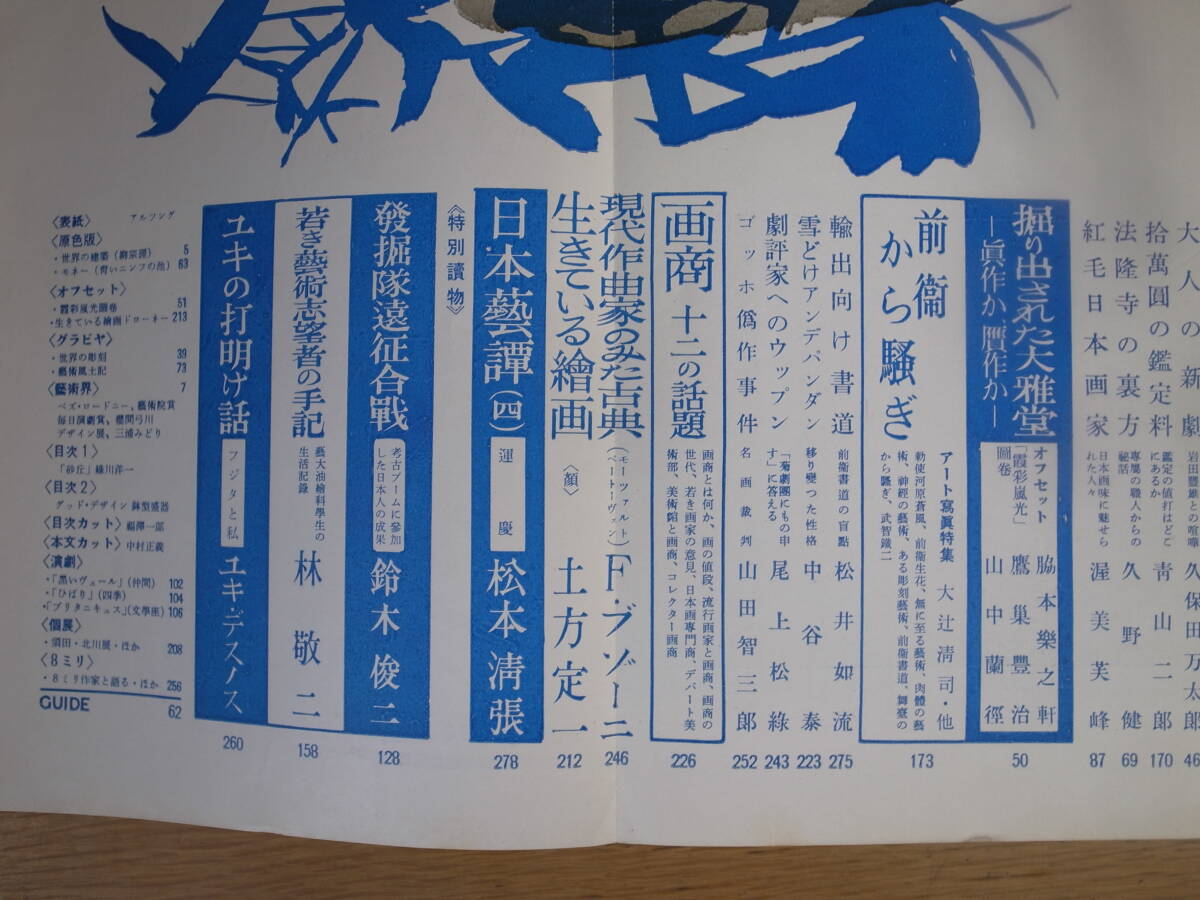 大〆人の新劇
岩田豐雄との喧嘩
久保田万太郎
46
拾萬圓の鑑定料
鑑定の値打はどこ
にあるか
靑山二郎
170
法隆寺の裏方
專屬の職人からの
秘話
久野健
69
紅毛日本画家
日本画味に魅せら
れた人々
渥美芙峰
87
掘り出された大雅堂
―眞作か贋作か―
オフセット
「霞彩嵐光」
圖卷
脇本樂之軒
鷹巢豐治
山中蘭徑
50
前衞
から騷ぎ
アート寫眞特集
大辻淸司・他
勅使河原蒼風、前衞生花、無に至る藝術、肉體の藝
術、神經の藝術、ある彫刻藝術、前衞書道、舞臺の
から騷ぎ、武智鐵二
173
輸出向け書道
前衞書道の盲點
松井如流
275
雪どけアンデパンダン
移り變つた性格
中谷泰
223
劇評家へのウップン
「菊劇團にもの申
す」に答える
尾上松綠
243
ゴッホ僞作事件
名画裁判
山田智三郎
252
画商 十二の話題
画商とは何か、画の値段、流行画家と画商、画商の
世代、若き画家の意見、日本画專門商、デパート美
術部、美術館と画商、コレクター画商
226
現代作曲家のみた古典
(モーツァルト
ベートーヴェン)
F・ブゾーニ
246
生きている繪画
〈顏〉
土方定一
212
《特別讀物》
日本藝譚(四)
運慶
松本淸張
278
發掘隊遠征合戰
考古ブームに參加
した日本人の成果
鈴木俊二
128
若き藝術志望者の手記
藝大油繪科學生の
生活記錄
林敬二
158
ユキの打明け話
フジタと私
ユキ・デスノス
260
〈表紙〉 アルツング
〈原色版〉
・世界の建築（磨崇禪） 5
・モネー（靑いニンフの池） 63
〈オフセット〉
・霞彩嵐光圖卷 51
・生きている繪画ドローネー 213
〈グラビヤ〉
・世界の彫刻 39
・藝術風土記 73
〈藝術界〉 7
ベズ・ロードニー、藝術院賞
毎日演劇賞、櫻間弓川
デザイン展、三浦みどり
〈目次1〉
「砂丘」綠川洋一
〈目次2〉
グッド・デザイン 鉢型盛器
〈目次カット〉 福澤一郎
〈本文カット〉 中村正義
〈演劇〉
・「黒いヴェール」（仲間） 102
・「ひばり」（四季） 104
・「ブリタニキュス」（文學座） 106
〈個展〉
・須田・北川展・ほか 208
〈8ミリ〉
・8ミリ作家と語る・ほか 256
GUIDE 62